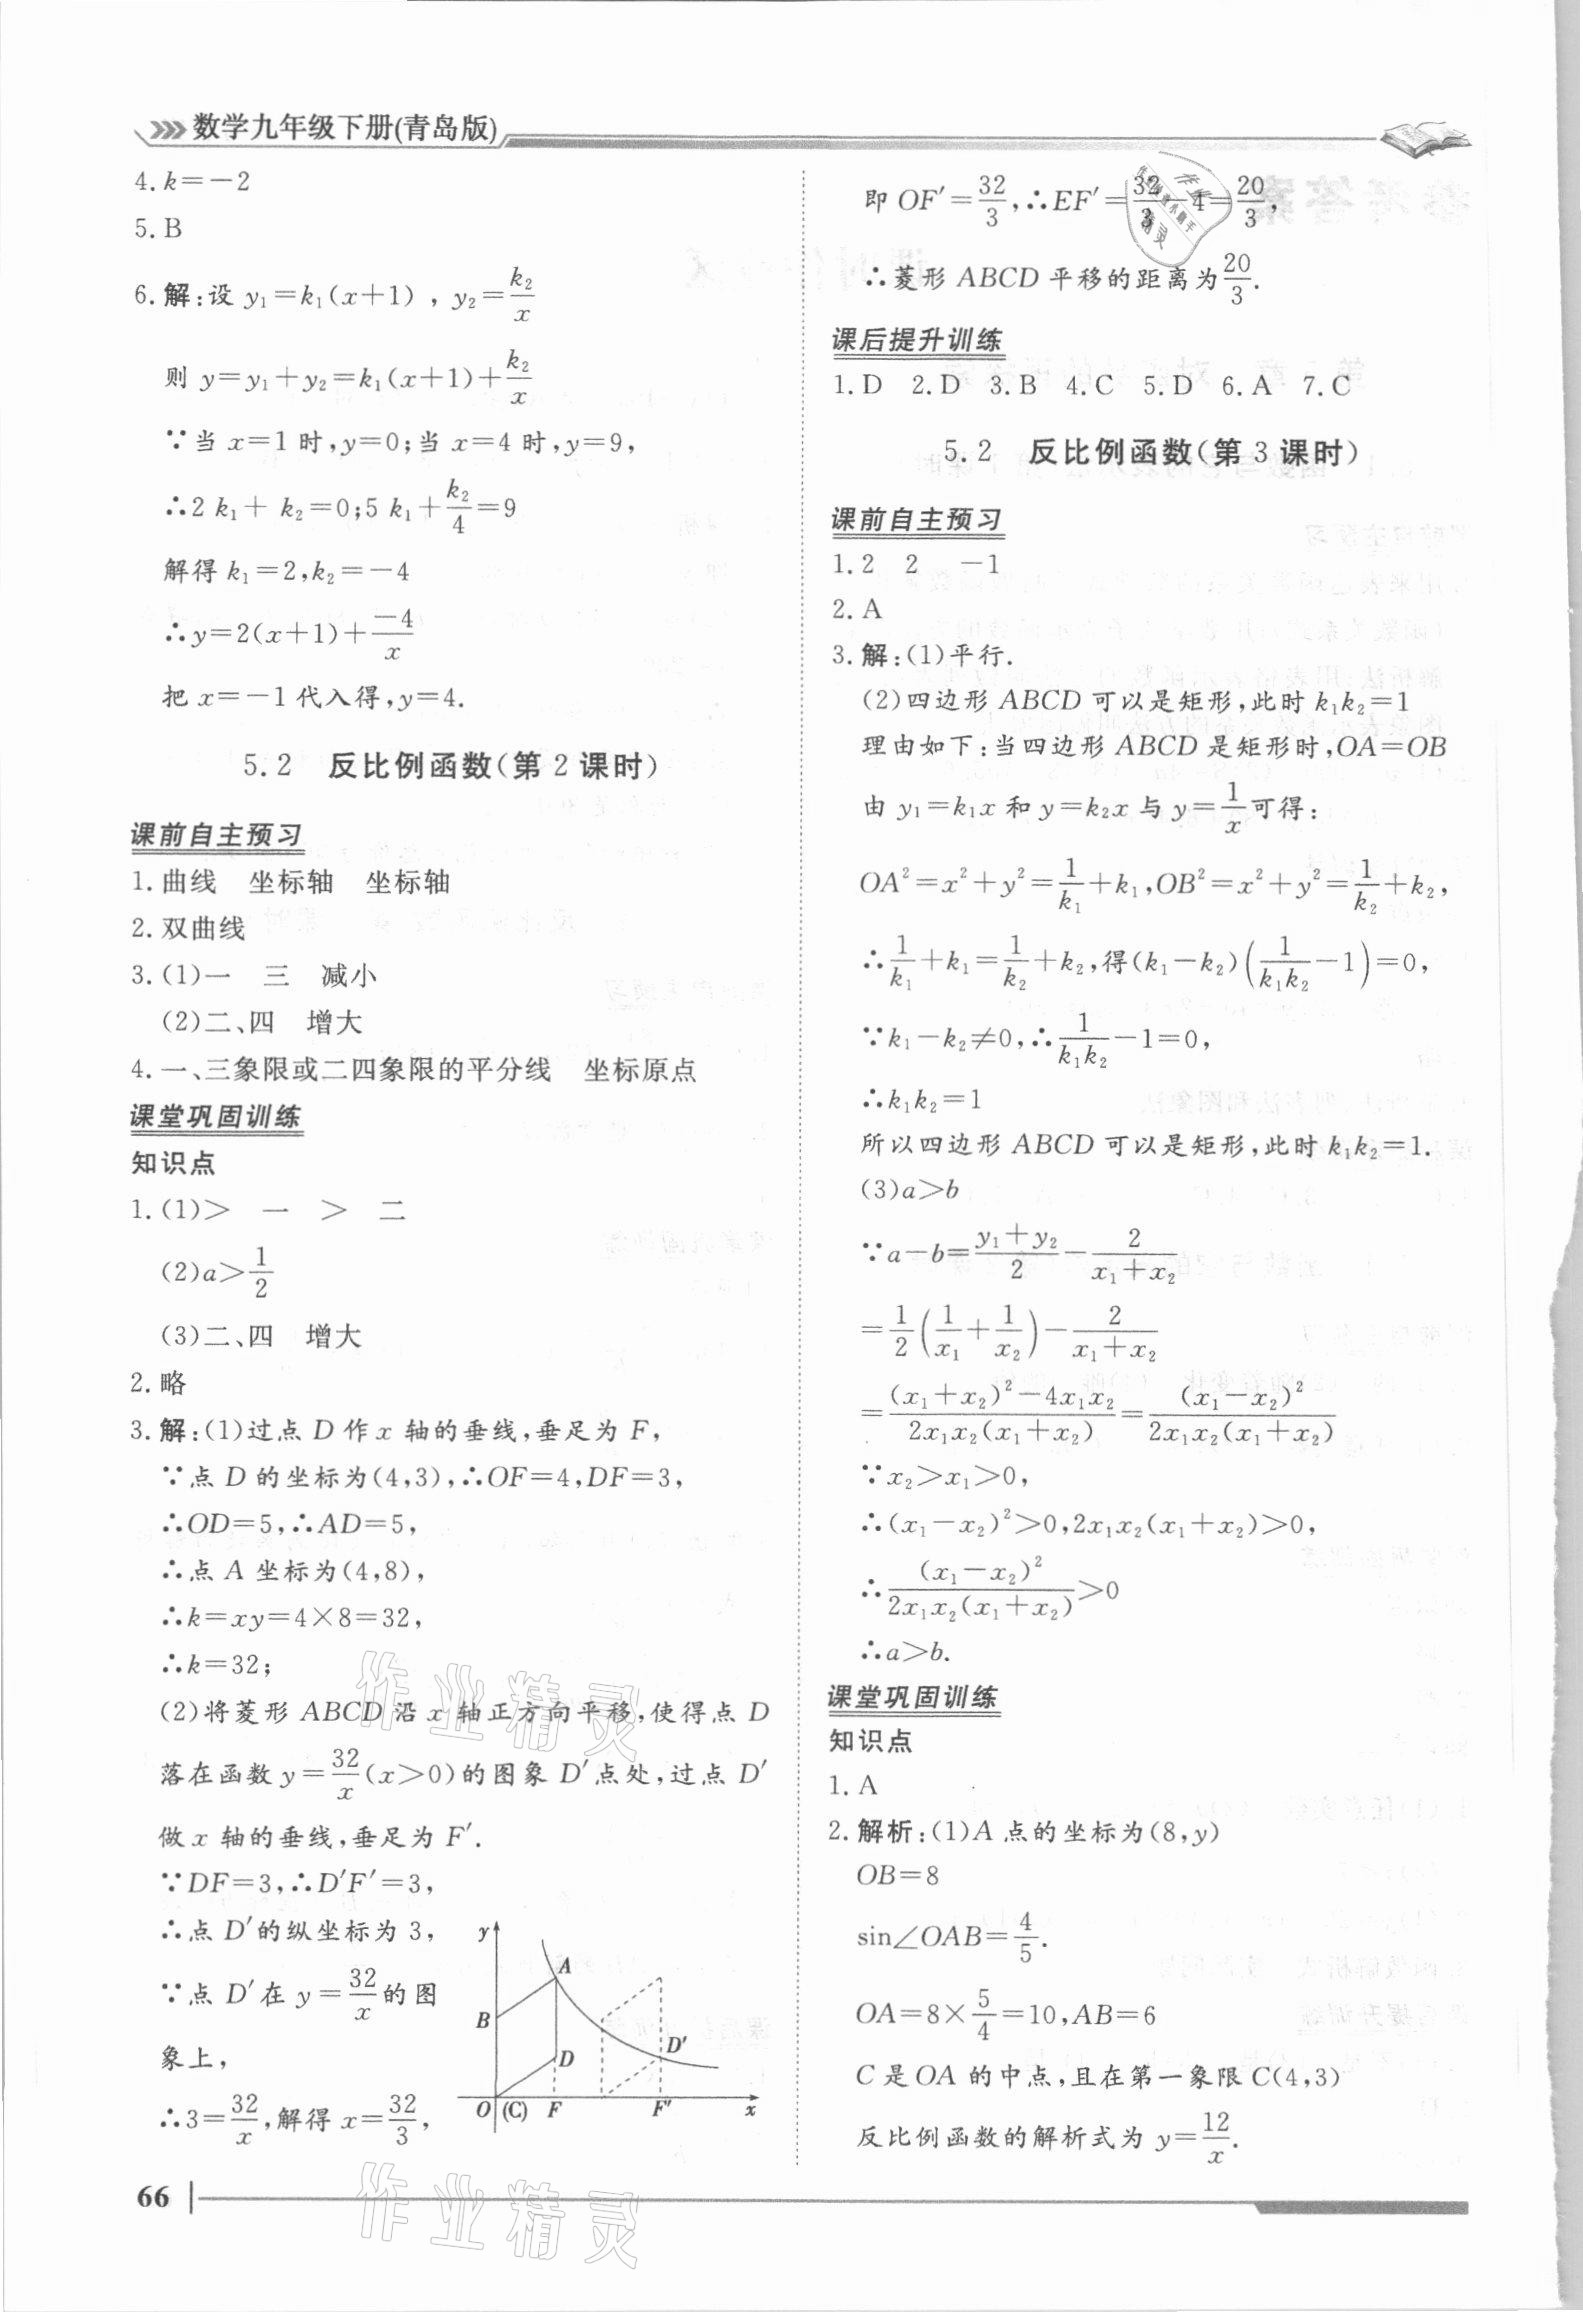 数学九年级下册(青岛版)
4.k=-2
5.B
6.解:设 y₁=k₁(x+1),y₂=k₂/x
则 y=y₁+y₂=k₁(x+1)+k₂/x
∵当 x=1 时,y=0;当 x=4 时,y=9,
∴2 k₁+ k₂=0;5 k₁+k₂/4=9
解得 k₁=2,k₂=-4
∴y=2(x+1)+-4/x
把 x=-1 代入得,y=4.
5.2 反比例函数(第 2 课时)
课前自主预习
1.曲线 坐标轴 坐标轴
2.双曲线
3.(1)一 三 减小
(2)二、四 增大
4.一、三象限或二四象限的平分线 坐标原点
课堂巩固训练
知识点
1.(1)> 一 > 二
(2)a>1/2
(3)二、四 增大
2.略
3.解:(1)过点 D 作 x 轴的垂线,垂足为 F,
∵点 D 的坐标为(4,3),∴OF=4,DF=3,
∴OD=5,∴AD=5,
∴点 A 坐标为(4,8),
∴k=xy=4×8=32,
∴k=32;
(2)将菱形 ABCD 沿 x 轴正方向平移,使得点 D
落在函数 y=32/x(x>0)的图象 D′点处,过点 D′
做 x 轴的垂线,垂足为 F′.
∵DF=3,∴D′F′=3,
∴点 D′的纵坐标为 3,
∵点 D′在 y=32/x的图
象上,
∴3=32/x,解得 x=32/3,
y
A
B
D
D′
O (C) F F′ x
即 OF′=32/3,∴EF′=32/3-4=20/3,
∴菱形 ABCD 平移的距离为20/3.
课后提升训练
1.D 2.D 3.B 4.C 5.D 6.A 7.C
5.2 反比例函数(第 3 课时)
课前自主预习
1.2 2 -1
2.A
3.解:(1)平行.
(2)四边形 ABCD 可以是矩形,此时 k₁k₂=1
理由如下:当四边形 ABCD 是矩形时,OA=OB
由 y₁=k₁x 和 y=k₂x 与 y=1/x可得:
OA²=x²+y²=1/k₁+k₁,OB²=x²+y²=1/k₂+k₂,
∴1/k₁+k₁=1/k₂+k₂,得(k₁-k₂)(1/k₁k₂-1)=0,
∵k₁-k₂≠0,∴1/k₁k₂-1=0,
∴k₁k₂=1
所以四边形 ABCD 可以是矩形,此时 k₁k₂=1.
(3)a>b
∵a-b=(y₁+y₂)/2-2/(x₁+x₂)
=1/2(1/x₁+1/x₂)-2/(x₁+x₂)
=((x₁+x₂)²-4x₁x₂)/(2x₁x₂(x₁+x₂))=(x₁-x₂)²/(2x₁x₂(x₁+x₂))
∵x₂>x₁>0,
∴(x₁-x₂)²>0,2x₁x₂(x₁+x₂)>0,
∴(x₁-x₂)²/(2x₁x₂(x₁+x₂))>0
∴a>b.
课堂巩固训练
知识点
1.A
2.解析:(1)A 点的坐标为(8,y)
OB=8
sin∠OAB=4/5.
OA=8×5/4=10,AB=6
C 是 OA 的中点,且在第一象限 C(4,3)
反比例函数的解析式为 y=12/x.
66
作业精灵
作业精灵